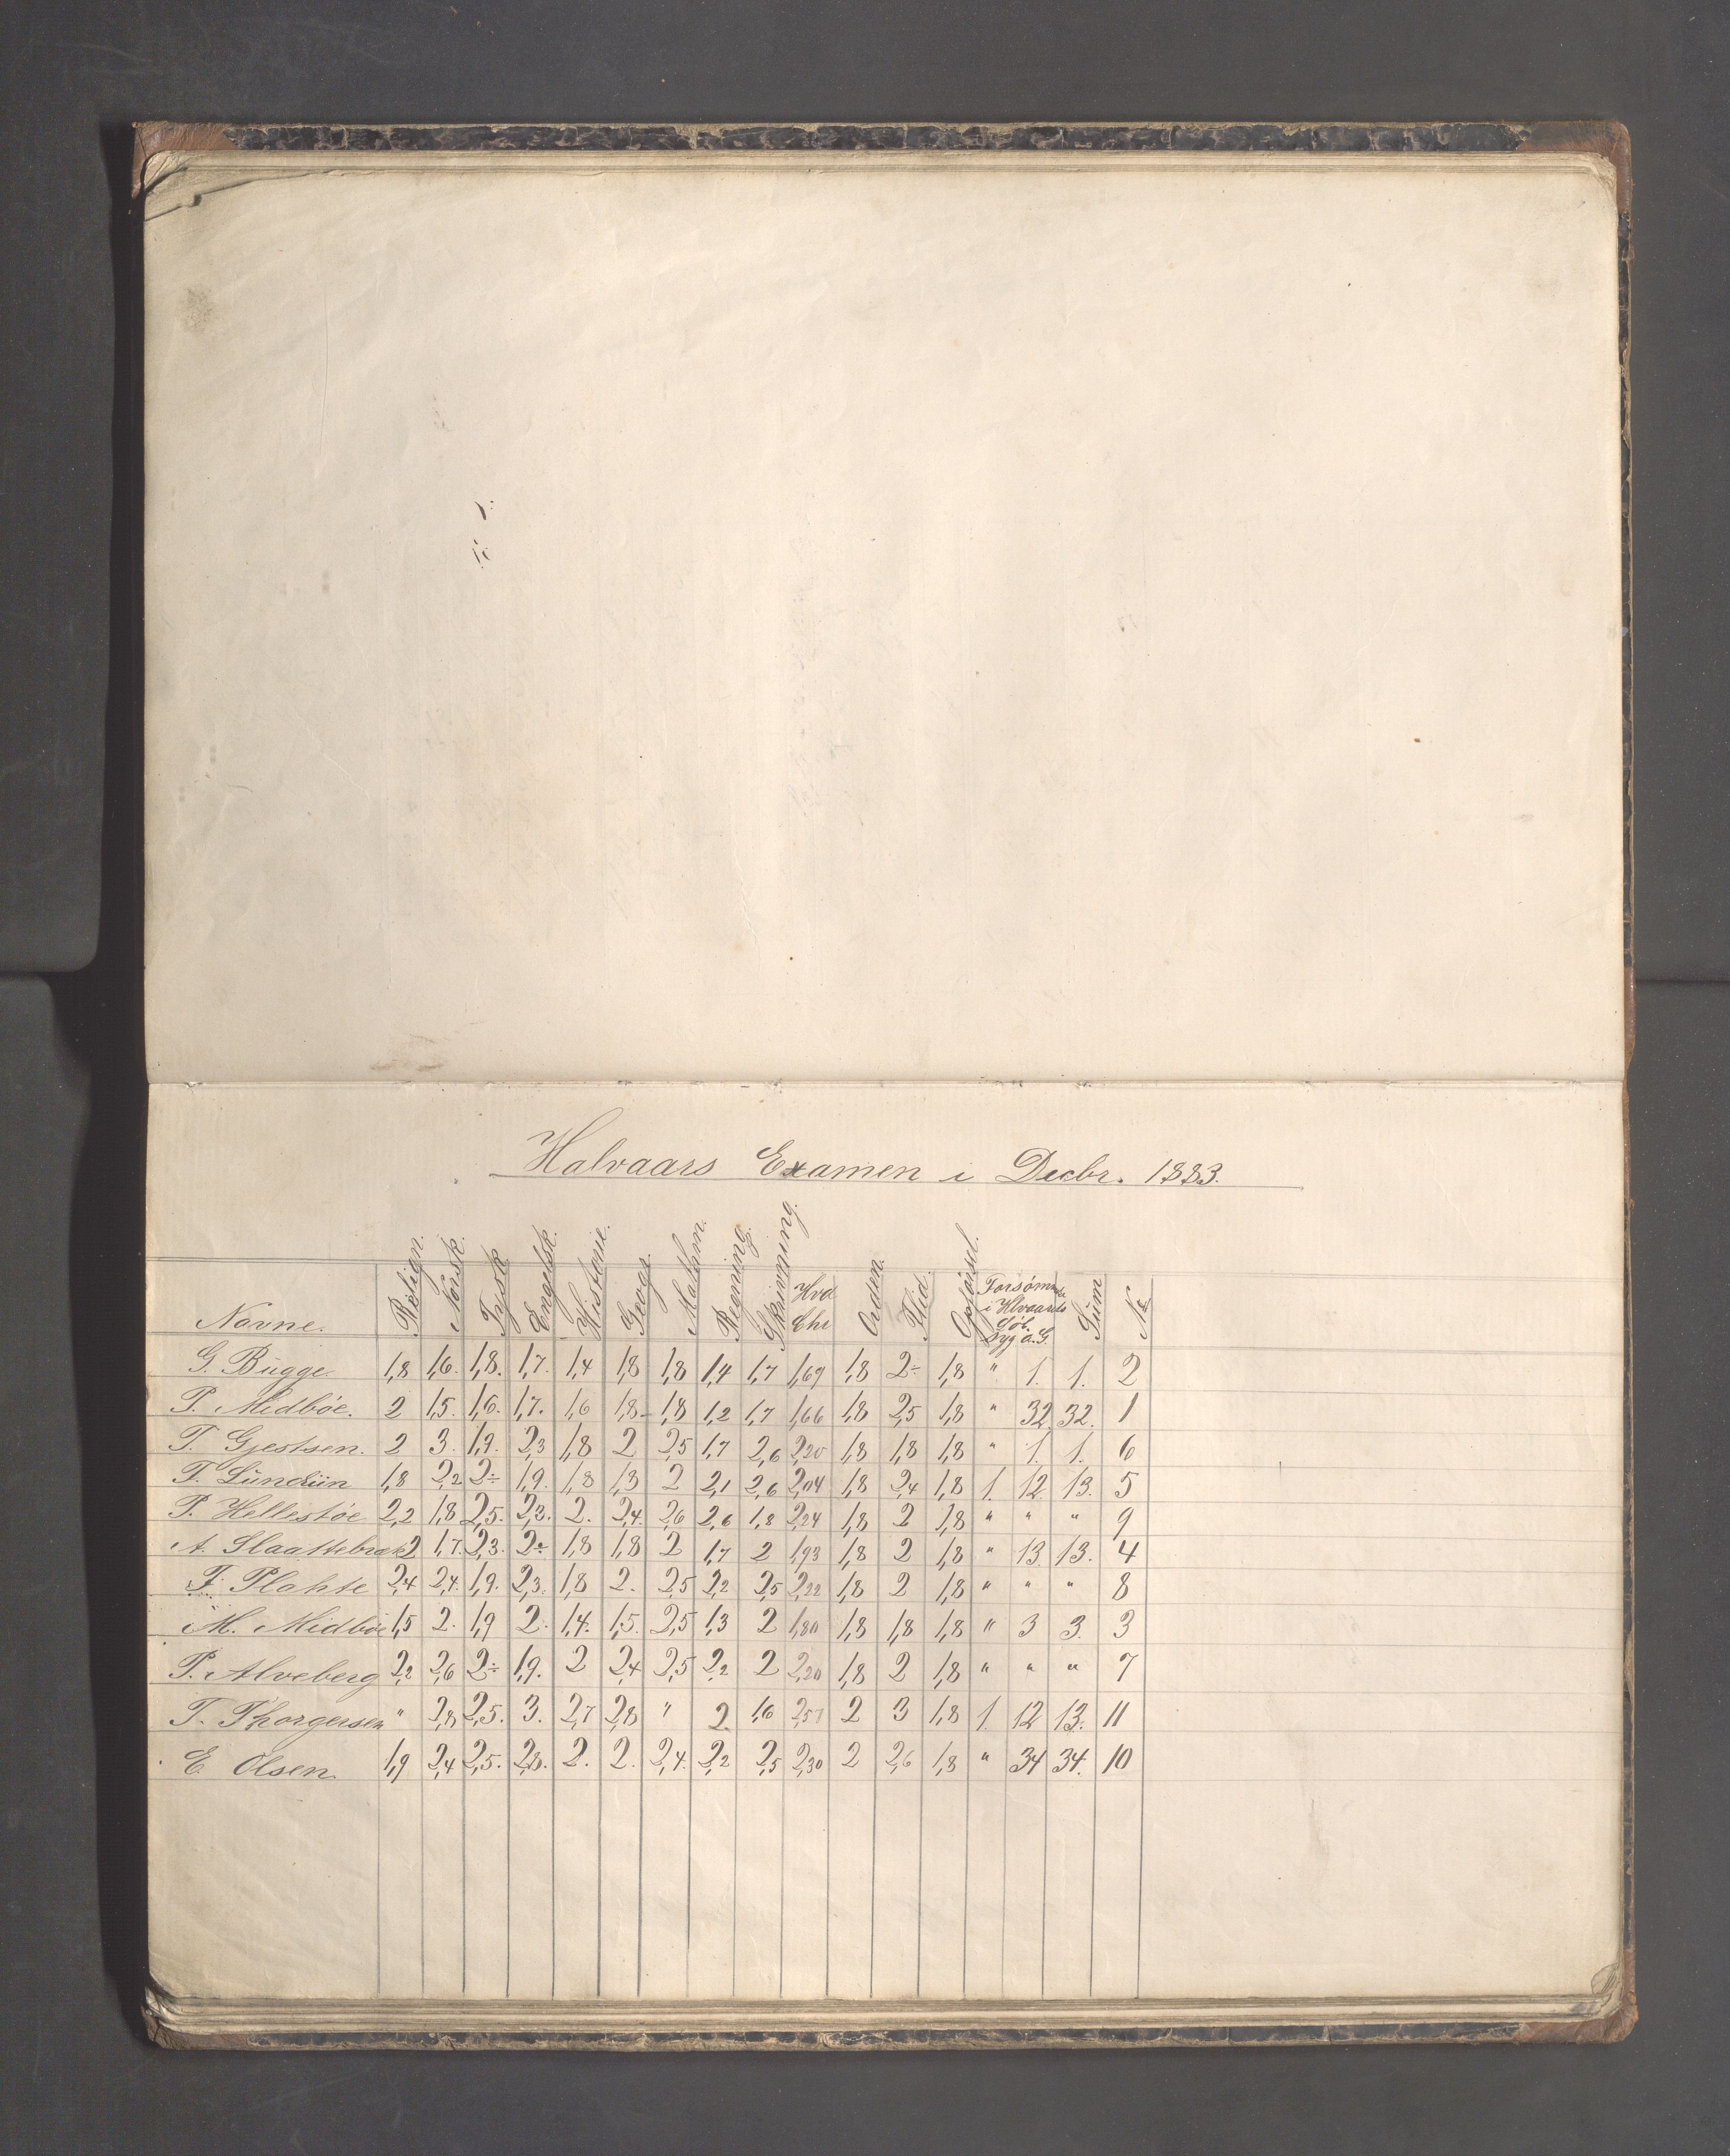 Halvaars Examen i Decbr. 1883.
Navne. Relign. Norsk. Tysk Engelsk. Historie. Geogr. Mathm. Regning. Skrivning. Hvd Chr Orden. Flid. Opførsel. Forsømte i Hlvaaret Syg a. G. Sum No
G. Bugge. 1,8 1,6. 1,8. 1,7. 1,4 1,8 1,8 1,4 1,7 1,69 1,8 2÷ 1,8 " 1. 1. 2
P. Midböe. 2 1,5. 1,6. 1,7. 1,6 1,8 1,8 1,2 1,7 1,66 1,8 2,5 1,8 " 32 32. 1
T. Gjestsen. 2 3. 1,9. 2,3 1,8 2 2,5 1,7 2,6 2,20 1,8 1,8 1,8 " 1. 1. 6
T. Lündiin 1,8 2,2 2÷ 1,9. 1,8 1,3 2 2,1 2,6 2,04 1,8 2,4 1,8 1. 12. 13. 5
P. Hellestöe 2,2 1,8 2,5. 2,3. 2. 2,4. 2,6 2,6 1,8 2,24 1,8 2 1,8 " " " 9
A. Slaattebræk 2 1,7. 2,3. 2÷ 1,8 1,8 2 1,7 2 1,93 1,8 2 1,8 " 13. 13. 4
F. Plahte 2,4 2,4. 1,9. 2,3. 1,8 2. 2,5 2,2 2,5 2,22 1,8 2 1,8 " " " 8
M. Midböe 1,5 2. 1,9 2. 1,4. 1,5. 2,5 1,3 2 1,80 1,8 1,8 1,8 " 3 3. 3
P. Alveberg 2,2 2,6 2÷ 1,9. 2 2,4 2,5 2,2 2 2,20 1,8 2 1,8 " " " 7
T. Thorgersen " 2,8 2,5. 3. 2,7 2,8 " 2. 1,6 2,57 2 3 1,8 1. 12 13. 11
E. Olsen. 1,9 2,4 2,5. 2,8. 2. 2. 2,4. 2,2 2,5 2,30 2 2,6 1,8 " 34 34. 10